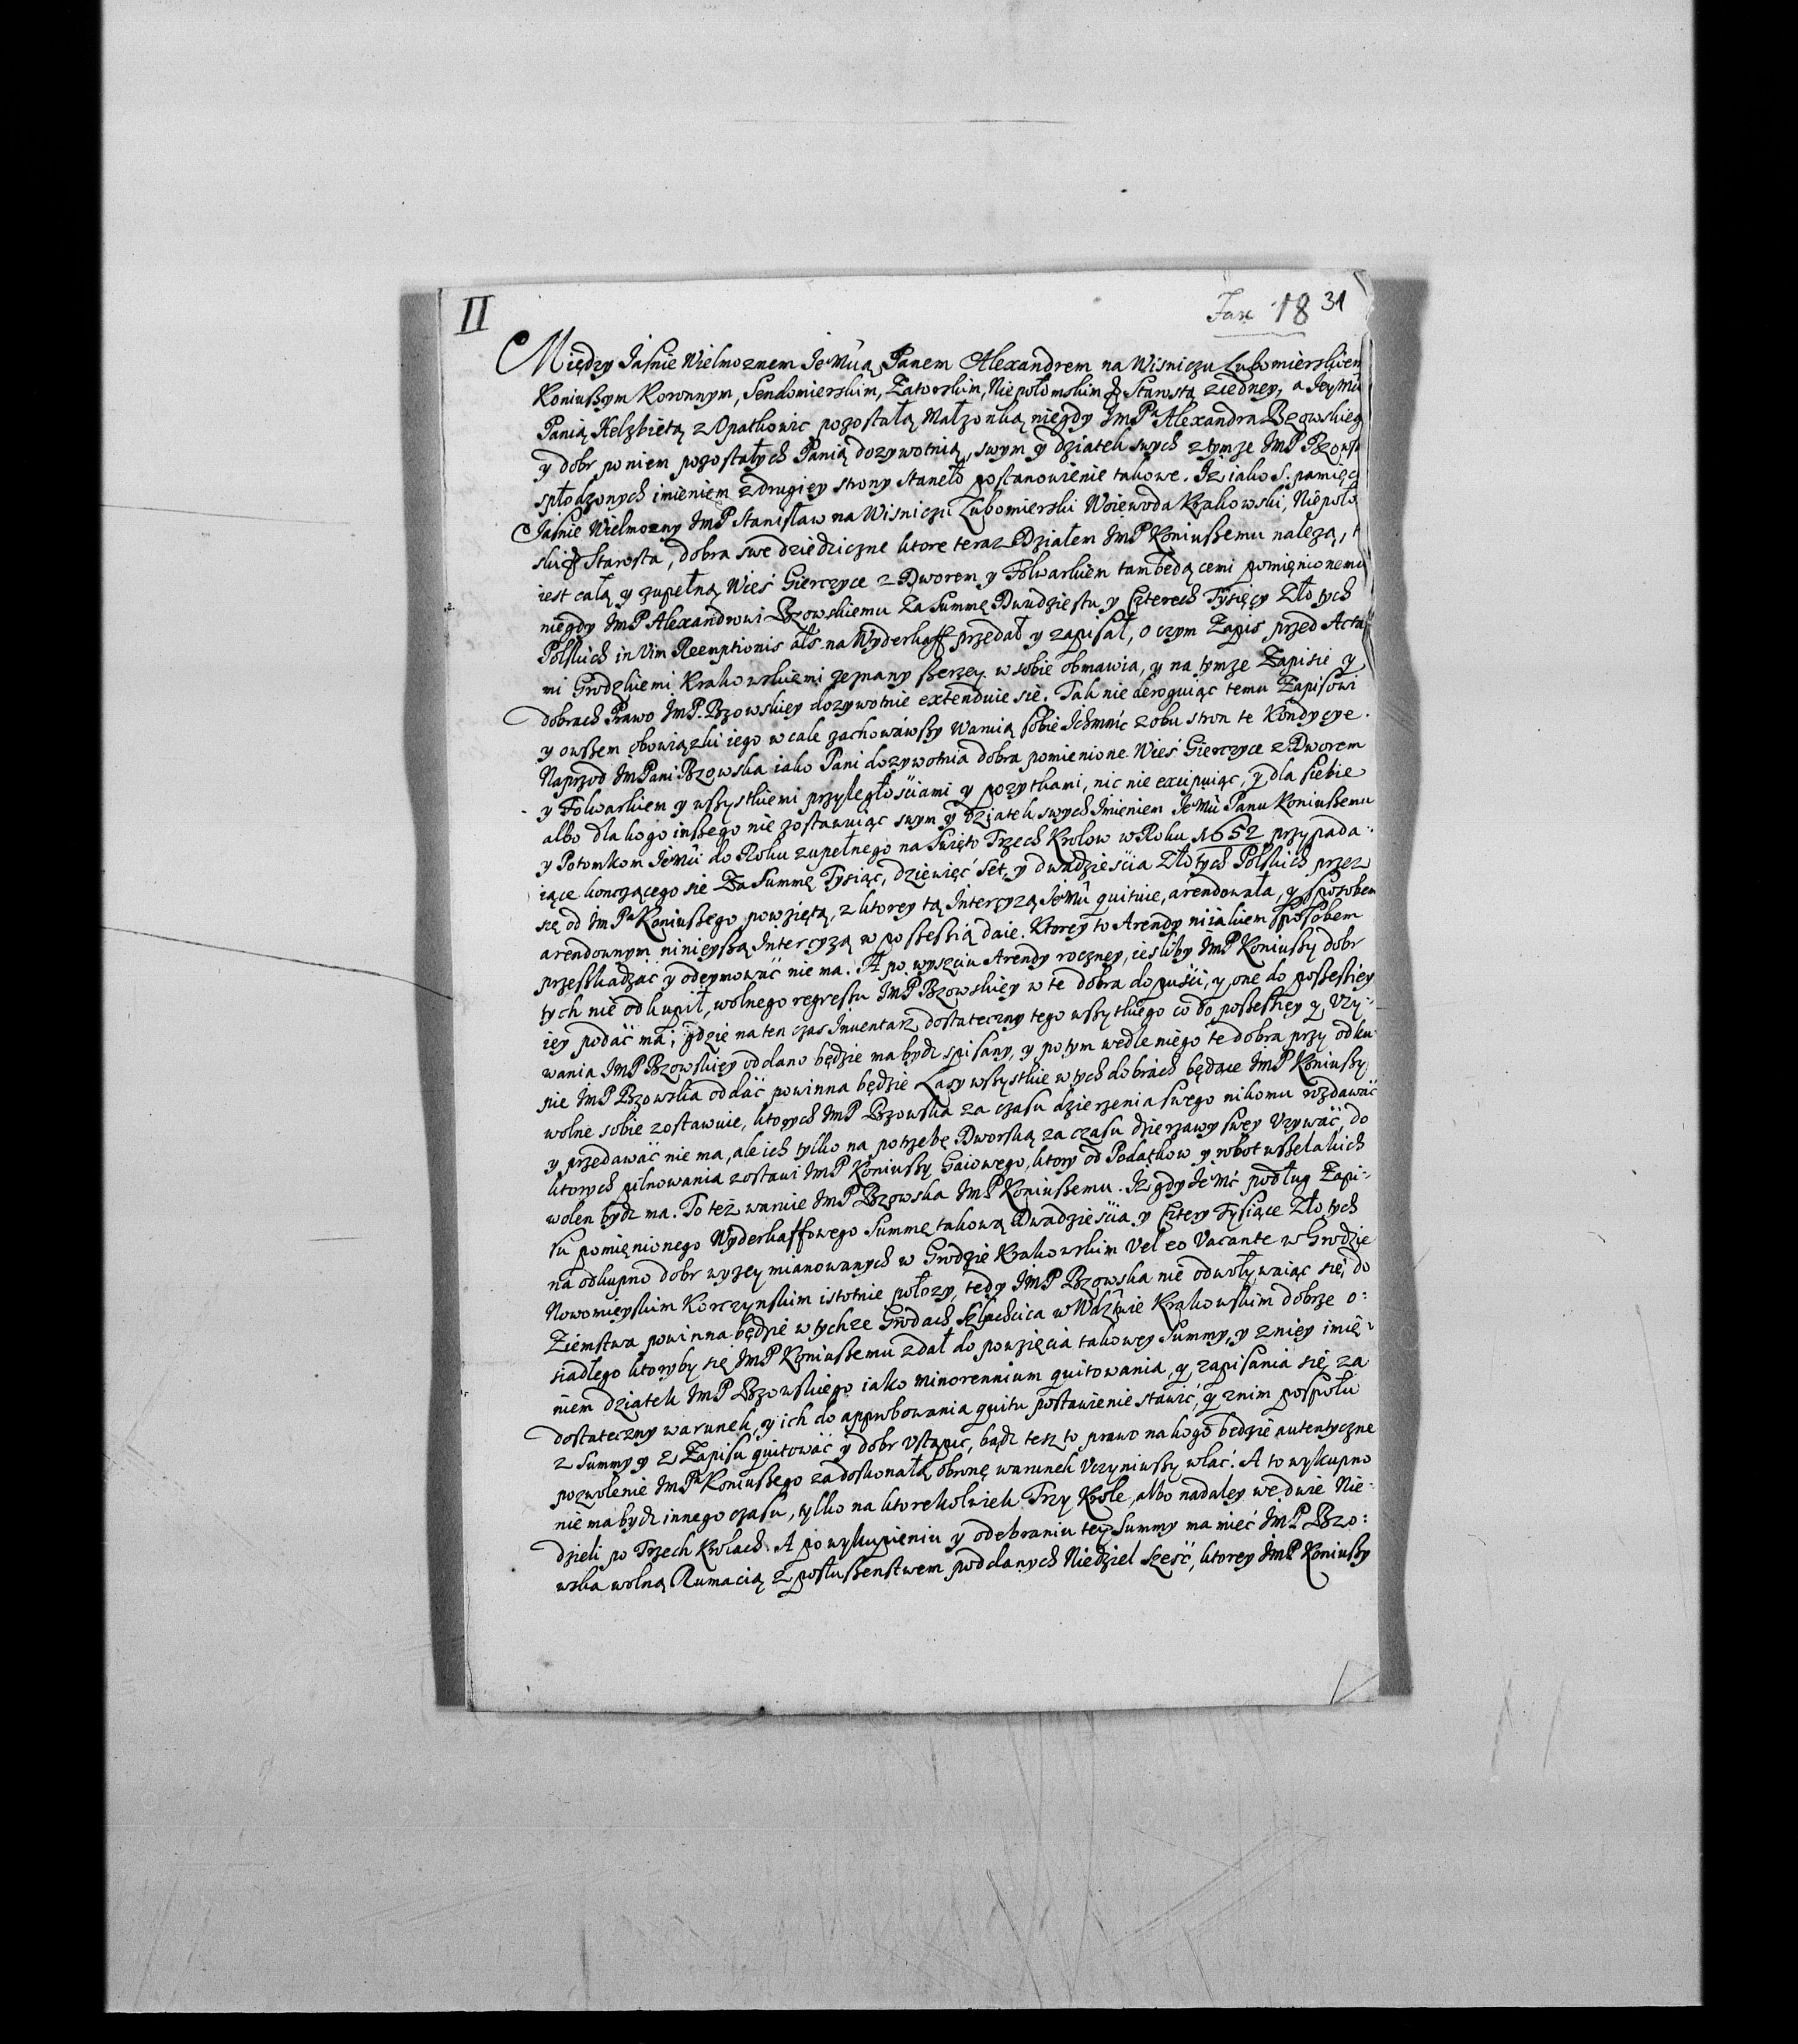 II
Fasc 18 31
Między Jaśnie Wielmoznem JeMścią Panem Alexandrem na Wisniczu Lubomierskiem
Koniuszym Koronnym, Sendomierskim, Zatorskim, Niepołomskim & Starostą z iedney, a JeyMś
Panią Helzbietą z Opatkowic pozostałą Małzonką niegdy JmPa Alexandra Bzowskieg
y dobr po niem pozostałych Panią dozywotnią, swym y dziatek swych z tymze JmP Bzowsk
spłodzonych imieniem z drugiey strony Staneło postanowienie takowe. Iz iako S. pamięci
Jaśnie Wielmozny JmP Stanisław na Wisniczu Lubomierski Woiewoda Krakowski, Niepoło
ski & Starosta, dobra swe dziedziczne ktore teraz Działem JmP Koniuszemu nalezą, t
iest całą y zupełną Wieś Gierczyce z Dworem y Folwarkiem tam będącemi pomięnionemu
niegdy JmP Alexandrowi Bzowskiemu Za Summę Dwudziestu y Czterech Tysięcy Złotych
Polskich in Vim Reemptionis als na Wyderkaff przedał y zapisał, o czym Zapis przed Acta
mi Grodzkiemi Krakowskiemi zeznany szerzey w sobie obmawia, y na tymze Zapisie y
dobrach Prawo JmP. Bzowskiey dozywotnie extenduie się. Tak nie deroguiąc temu Zapisowi
y owszem obowiązki iego w cale zachowawszy Waruią sobie Ichmśc z obu stron te Kondycye.
Naprzod JmPani Bzowska iako Pani dozywotnia dobra pomienione Wieś Gierczyce z Dworem
y Folwarkiem y wszystkiemi przyległościami y pozytkami, nic nie excypuiąc, y dla siebie
albo dla kogo inszego nie zostawuiąc swym y dziatek swych Imieniem JeMś Panu Koniuszemu
y Potomkom JeMś do Roku zupełnego na Święto Trzech Krolow w Roku 1652 przypada-
iące konczącego się Za Summę Tysiąc, dziewięć Set, y dwadzieścia Złotych Polskich przez
się od JmPa Koniuszego powziętą, z ktorey tą Intercyzą JeMś quituie, arendowała, y sposobem
arendownym ninieyszą Intercyzą w possessią daie. Ktorey to Arendy niiakiem sposobem
przeszkadzac y odeymować nie ma. A po wyszciu Arendy roczney, iesliby JmP Koniuszy dobr
tych nie odkupił, wolnego regressu JmP Bzowskiey w te dobra dopuści, y one do possessiey
iey podać ma; gdzie na ten czas Inwentarz dostateczny tego wszytkiego co do possessiey y Uzy-
wania JmP Bzowskiey oddano będzie ma bydz spisany, y potym wedle niego te dobra przy odku
pie JmP Bzowska oddać powinna będzie Lasy wszystkie w tych dobrach będące JmP Koniuszy
wolne sobie zostawuie, ktorych JmP Bzowska za czasu dzierzenia swego nikomu rozdawać
y przedawać nie ma, ale ich tylko na potrzebę Dworską za czasu dzierzawy swey Uzywać, do
ktorych pilnowania zostawi JmP Koniuszy Gaiowego, ktory od Podatkow y robot wszelakich
wolen bydz ma. To też waruie JmP Bzowska JmP Koniuszemu. Iz gdy JeMć podług Zapi-
su pomięnionego Wyderkaffowego Summę takową Dwadzieścia y Cztery Tysiące Złotych
na odkupno dobr wyzey mianowanych w Grodzie Krakowskim Vel eo Vacante w Grodzie
Nowomieyskim Korczynskim istotnie położy, tedy JmP Bzowska nie odwoływaiąc się do
Ziemstwa powinna będzie w tychze Grodach Szlachcica w Wdztwie Krakowskim dobrze o:
siadłego ktoryby się JmP Koniuszemu zdał do powzięcia takowey Summy, y z niey imię-
niem dziatek JmP Bzowskiego iako minorennium quitowania, y zapisania się za
dostateczny warunek, y ich do approbowania quitu postawienie stawić, y z nim pospołu
z Summy y z Zapisu quitować y dobr Ustąpic, bądz tesz to prawo na kogo będzie autentyczne
pozwolenie JmPa Koniuszego za doskonałą obronę warunek Uczyniwszy wlać. A to wykupno
nie ma bydz innego czasu, tylko na ktorekolwiek Trzy Krole, albo nadaley we dwie Nie-
dzieli po Trzech Krolach. A po wykupieniu y odebraniu tey Summy ma mieć JmP Bzo:
wska wolną Rumacią z posłuszenstwem poddanych Niedziel Sześć, ktorey JmP Koniuszy